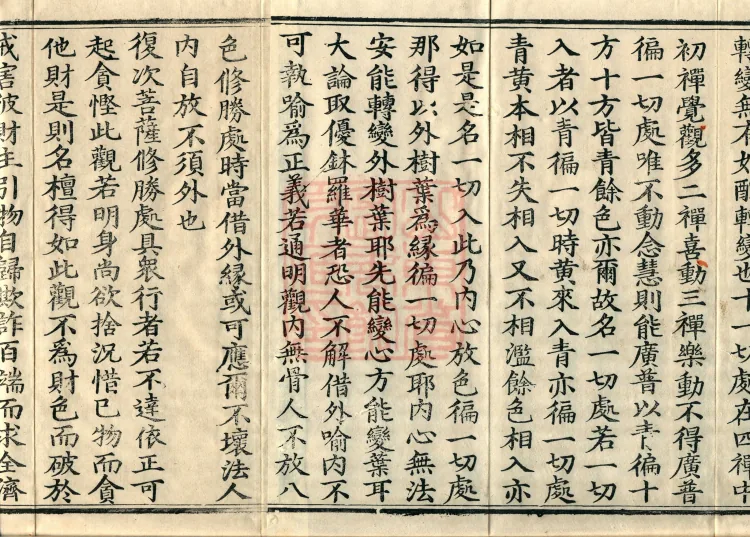 轉變無有如酪轉變也十一切處在四禪中
初禪覺觀多二禪喜動三禪樂動不得廣普
徧一切處唯不動念慧則能廣普以青徧十
方十方皆青餘色亦爾故名一切處若一切
入者以青徧一切時黄來入青亦徧一切處
青黄本相不失相入又不相濫餘色相入亦
如是是名一切入此乃内心放色徧一切處
那得以外樹葉爲縁徧一切處耶内心無法
安能轉變外樹葉耶先能變心方能變葉耳
大論取優鉢羅華者恐人不解借外喻内不
可執喻爲正義若通明觀内無骨人不放八
色修勝處時當借外縁或可應爾不壞法人
内自放不須外也
復次菩薩修勝處具衆行者若不達依正可
起貪慳此觀若明身尚欲捨況惜已物而貪
他財是則名檀得如此觀不爲財色而破於
戒害彼財主引物自歸欺詐百端而求全濟